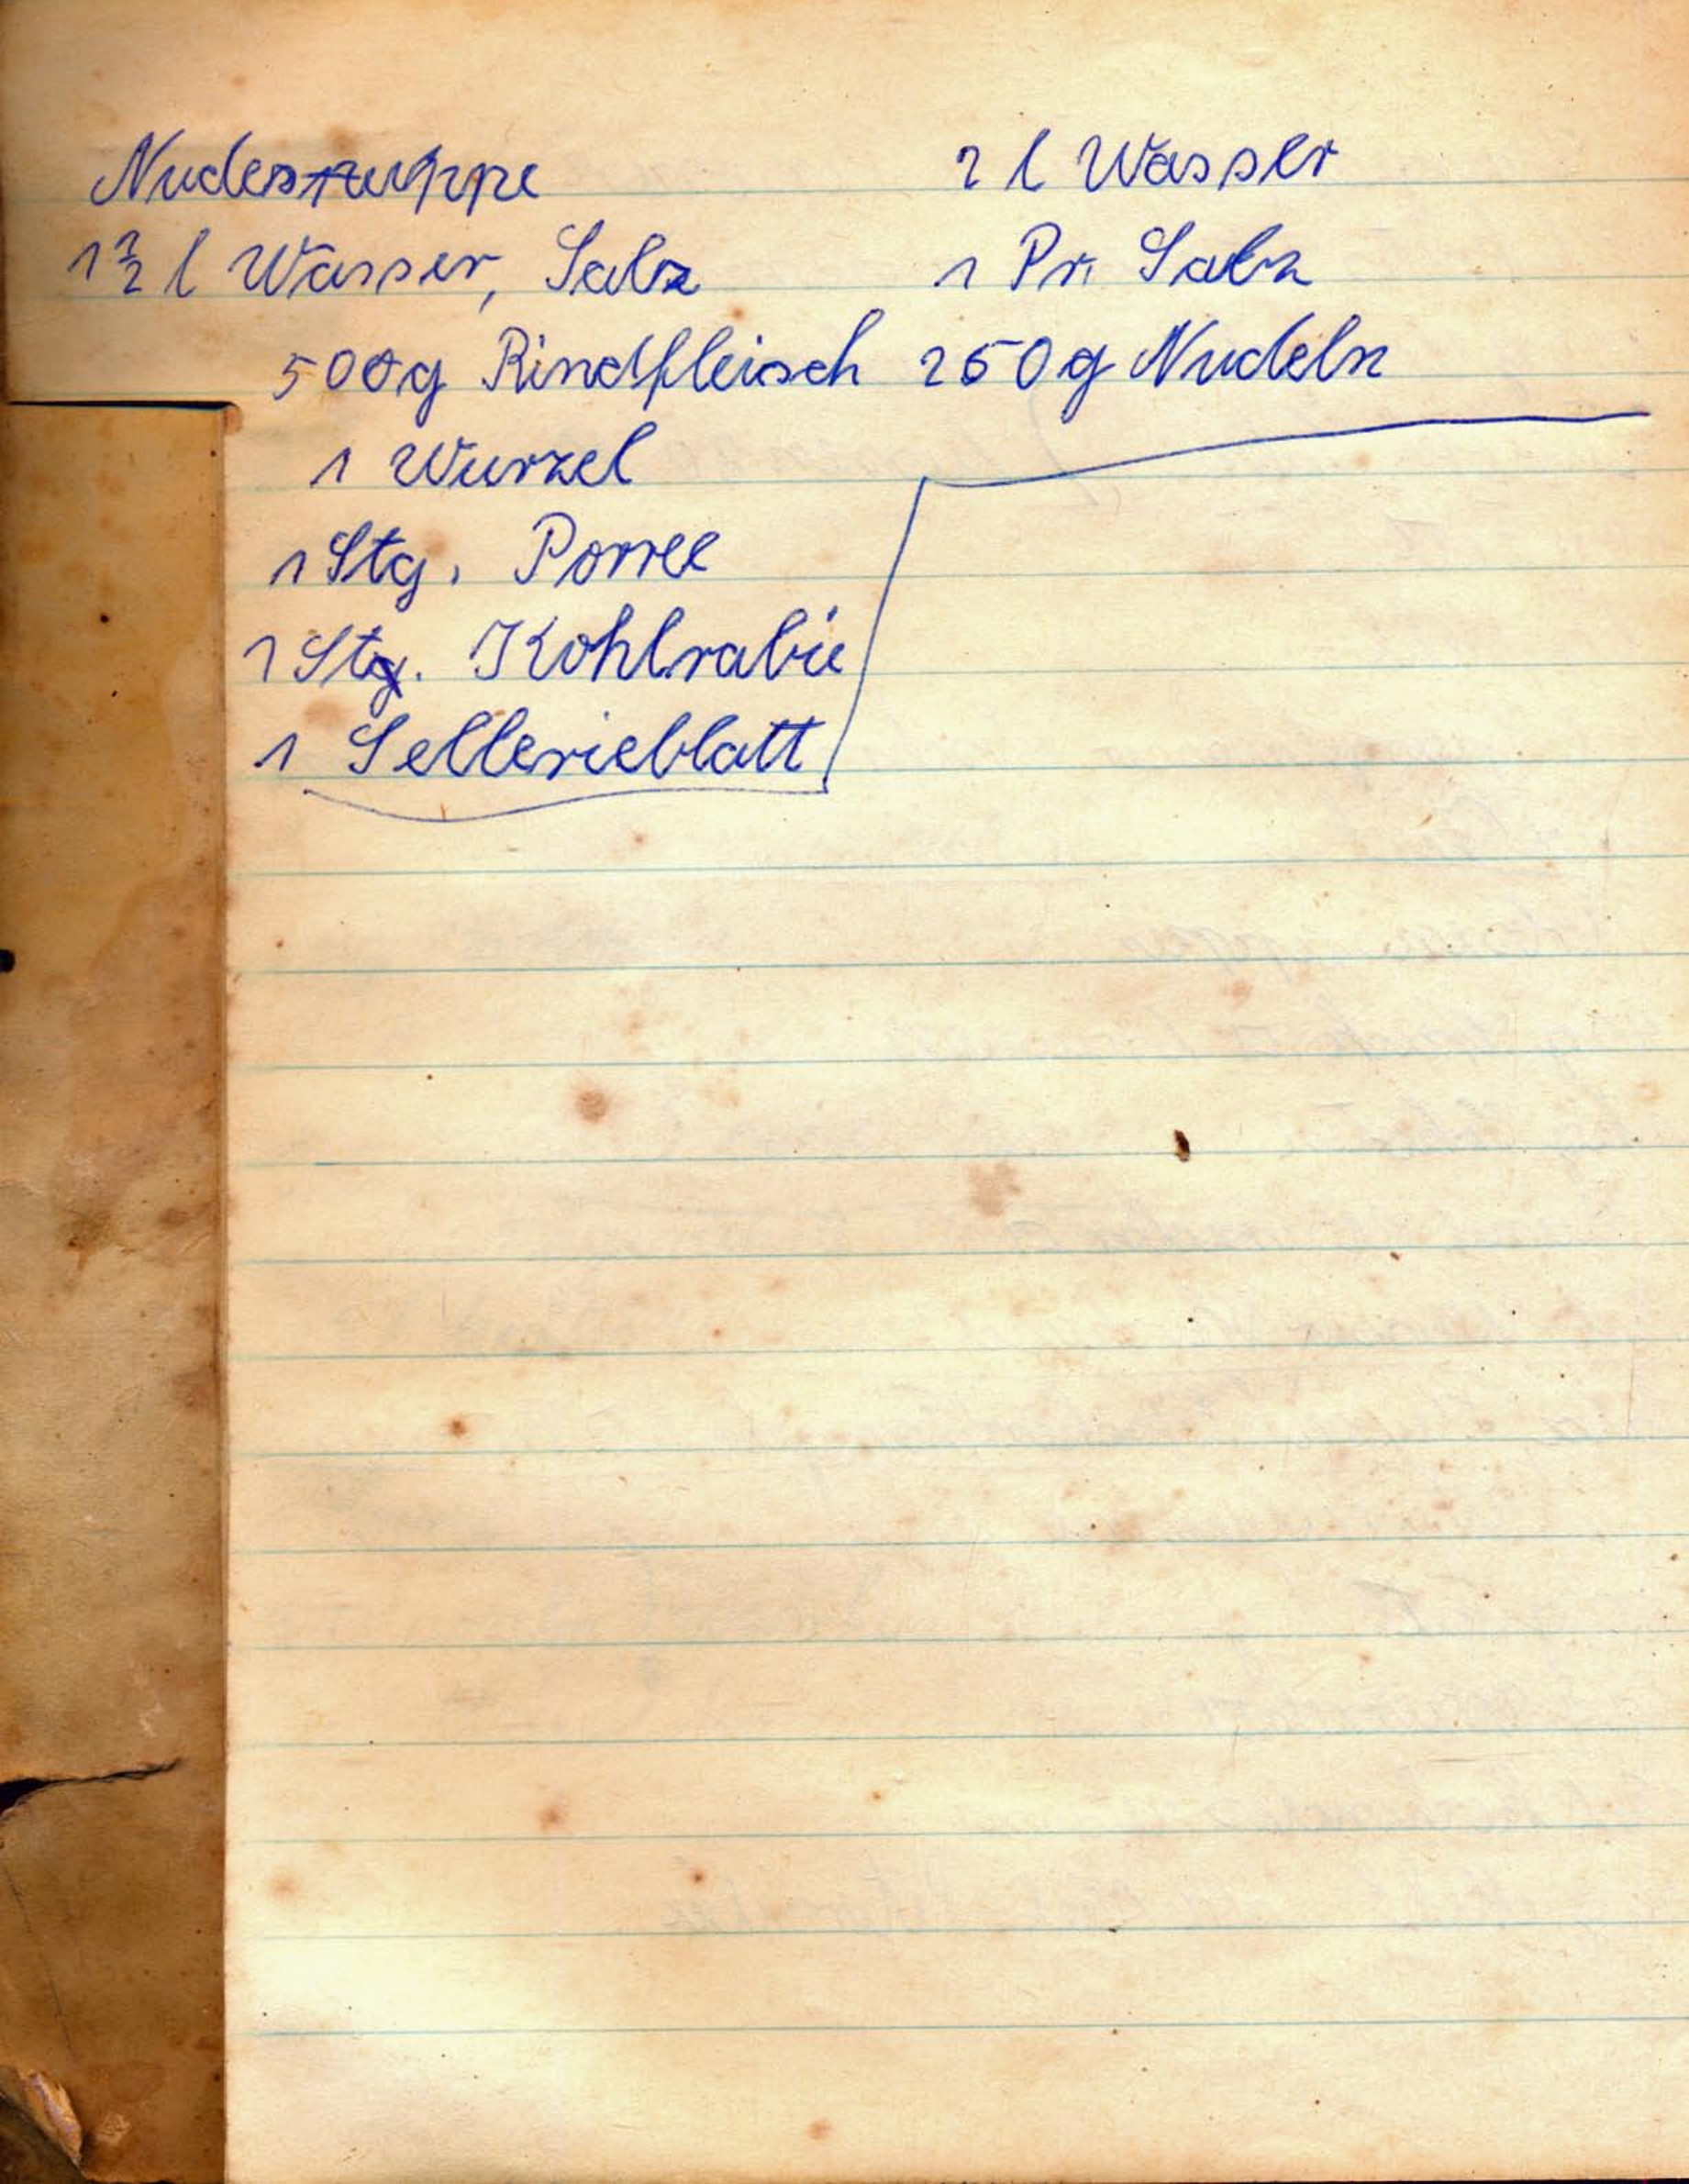 Nudelsuppe
1 1/2 l Wasser, Salz
500g Rindfleisch
1 Wurzel
1 Stg. Porree
1 Stg. Kohlrabie
1 Sellerieblatt
2 l Wasser
1 Pr. Salz
250g Nudeln